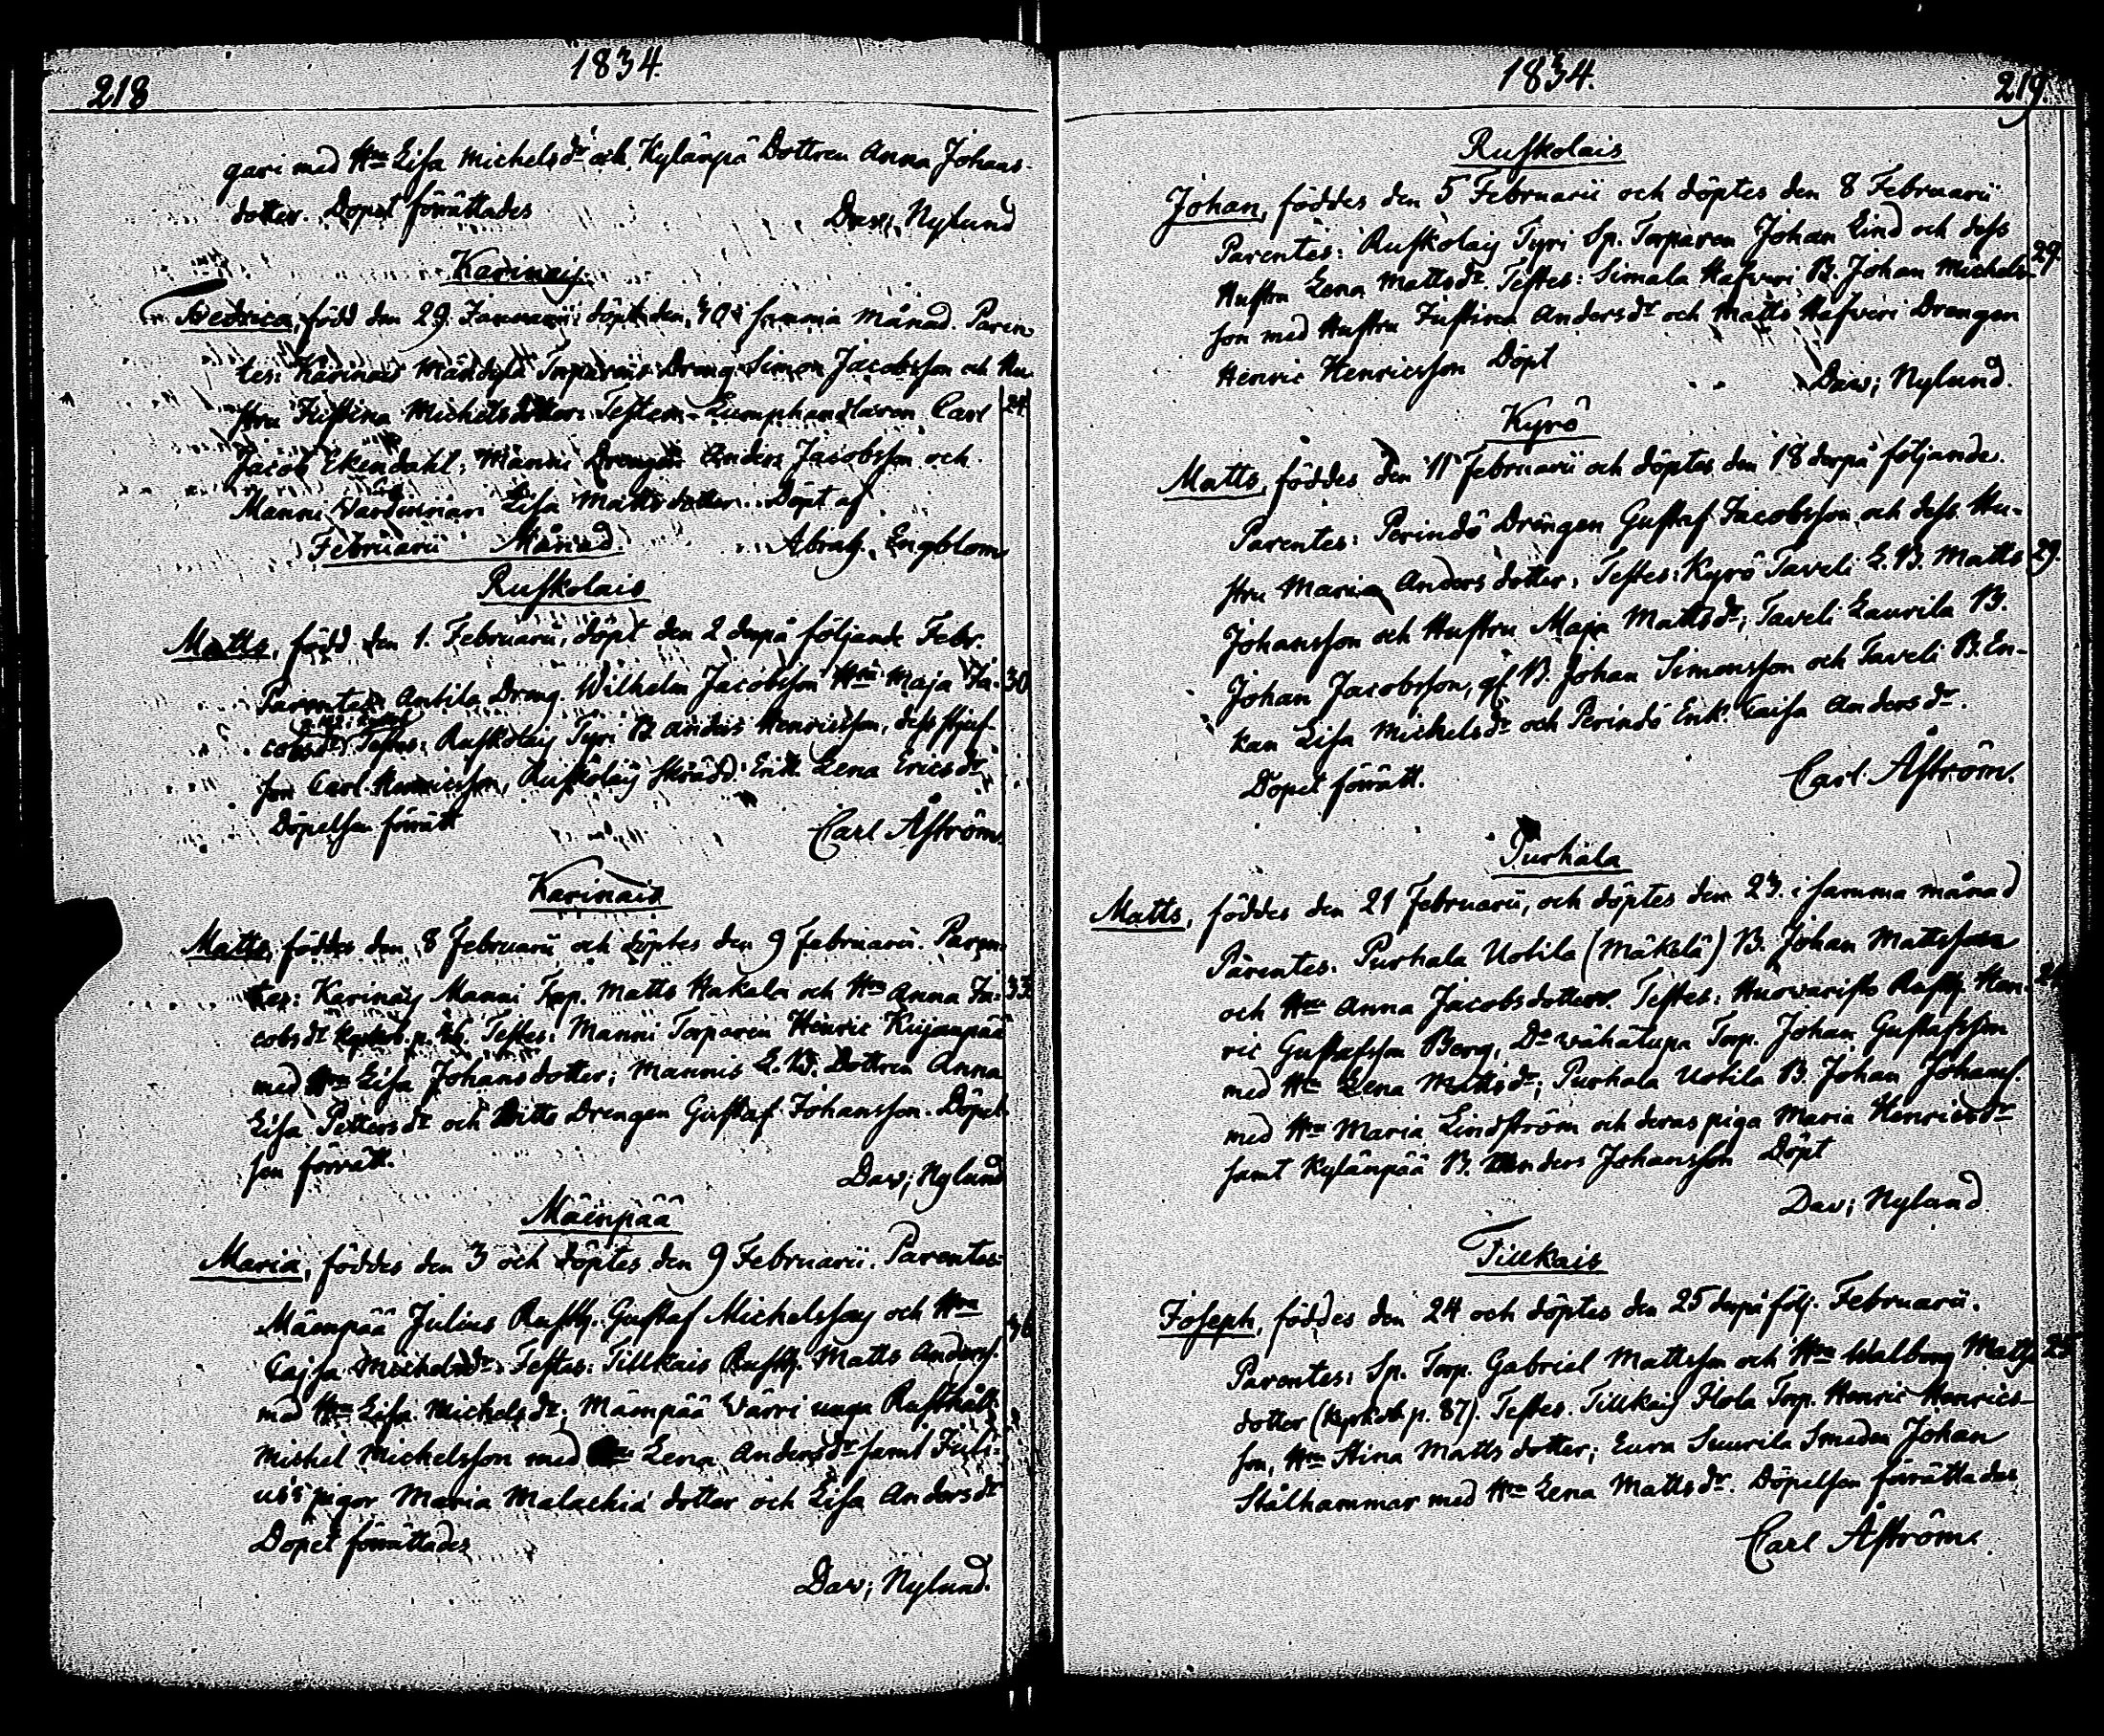 218
1834.
gari med Hru Lisa Michelsdr och Kylänpä Dottren Anna Johans-
dotter. Dopet förrättades Dav; Nylund
Karinais
Fredrica, född den 29. Januarii döpt den 30 i samma Månad. Paren-
tes: Karinais Torparens Dräng Simon Jacobsson och Hu-
stru Justina Michelsdotter. Testes: Lumphandlaren Carl 24.
Jacob Ekendahl, Manni Drängen Anders Jacobsson och
Manni Lisa Mattsdotter. Döpt af
Februarii Månad Abrah. Engblom
Ruskolais
Matts, född den 1. Februarii, döpt den 2 derpå följande Febr.
Parentes: Antila Dräng. Wilhelm Jacobsson Hru Maja Ja- 30.
cobsdr. Testes: Ruskolais Tyri B. Anders Henricsson, dess styf-
son Carl Henricsson, Ruskolais Skrädd. Enk. Lena Ericsdr
Döpelsen förrätt Carl Åström.
Karinais
Matts, föddes den 8 Februarii och döptes den 9 Februarii. Paren-
tes: Karinais Manni Torp. Matts Hakala och Hru Anna Ja- 33.
cobsdr Testes: Manni Torparen Henric Kujanpää
med Hru Lisa Johansdotter; Mannis L. B. Dottren Anna
Lisa Pettersdr och Ditto Drengen Gustaf Johansson. Döpel-
sen förrätt. Dav; Nylund
Mäenpää
Maria, föddes den 3 och döptes den 9 Februarii. Parentes:
Mäenpää Julius Rusth. Gustaf Michelsson och Hru
Cajsa Michelsdr. Testes: Tillkais Rusth. Matts Anders.
med Hru Lisa Michelsdr; Mäenpää Värri unga Rusthåll.
Michel Michelsson med Lena Andersdr samt Juli-
us's pigor Maria Malachia dotter och Lisa Andersdr
Dopet förrättades
Dav; Nylund.
1834.
219.
Ruskolais
Johan, föddes den 5 Februarii och döptes den 8 Februarii
Parentes: Ruskolais Tyri Sp. Torparen Johan Lind och dess 29.
Hustru Lena Mattsdr. Testes: Simala Hafveri B. Johan Michels-
son med Hustru Justina Andersdr och Matts Hafveri Drengen
Henric Henricsson Döpt Dav; Nylund.
Kyrö
Matts, föddes den 11 Februarii och döptes den 18 derpå följande.
Parentes: Perindö Drängen Gustaf Jacobsson och dess Hu-
stru Maria Anders dotter. Testes: Kyrö Taveli L. B. Matts 29.
Johansson och Hustru Maja Mattsdr; Taveli Laurila B.
Johan Jacobsson, gl. B. Johan Simonsson och Taveli B. En-
kan Lisa Michelsdr och Perindö Enk. Caisa Andersdr.
Dopet förrätt. Carl Åström.
Purhala
Matts, föddes den 21 Februarii, och döptes den 23. i samma månad
Parentes. Purhala Uotila (Mäkelä) B. Johan Mattsson
och Hru Anna Jacobsdotter. Testes: Huovaristo Rusth. Hen-
ric Gustafsson Berg, Do Wähätupa Torp. Johan Gustafsson
med Hru Lena Mattsdr; Purhala Uotila B. Johan Johans.
med Hru Maria Lindström och deras piga Maria Henricsdr
samt Kylänpää B. Anders Johansson Döpt
Dav; Nylund
Tillkais
Joseph, föddes den 24 och döptes den 25 derpå följ. Februarii.
Parentes: Sp. Torp. Gabriel Mattsson och Hru Walborg Matts-
dotter (Kyrkob p. 87). Testes. Tillkais Flola Torp. Henric Henrics-
son, Hru Stina Matts dotter; Eura Suurila Smeden Johan
Stålhammar med Hru Lena Mattsdr. Döpelsen förrättades
Carl Åström.